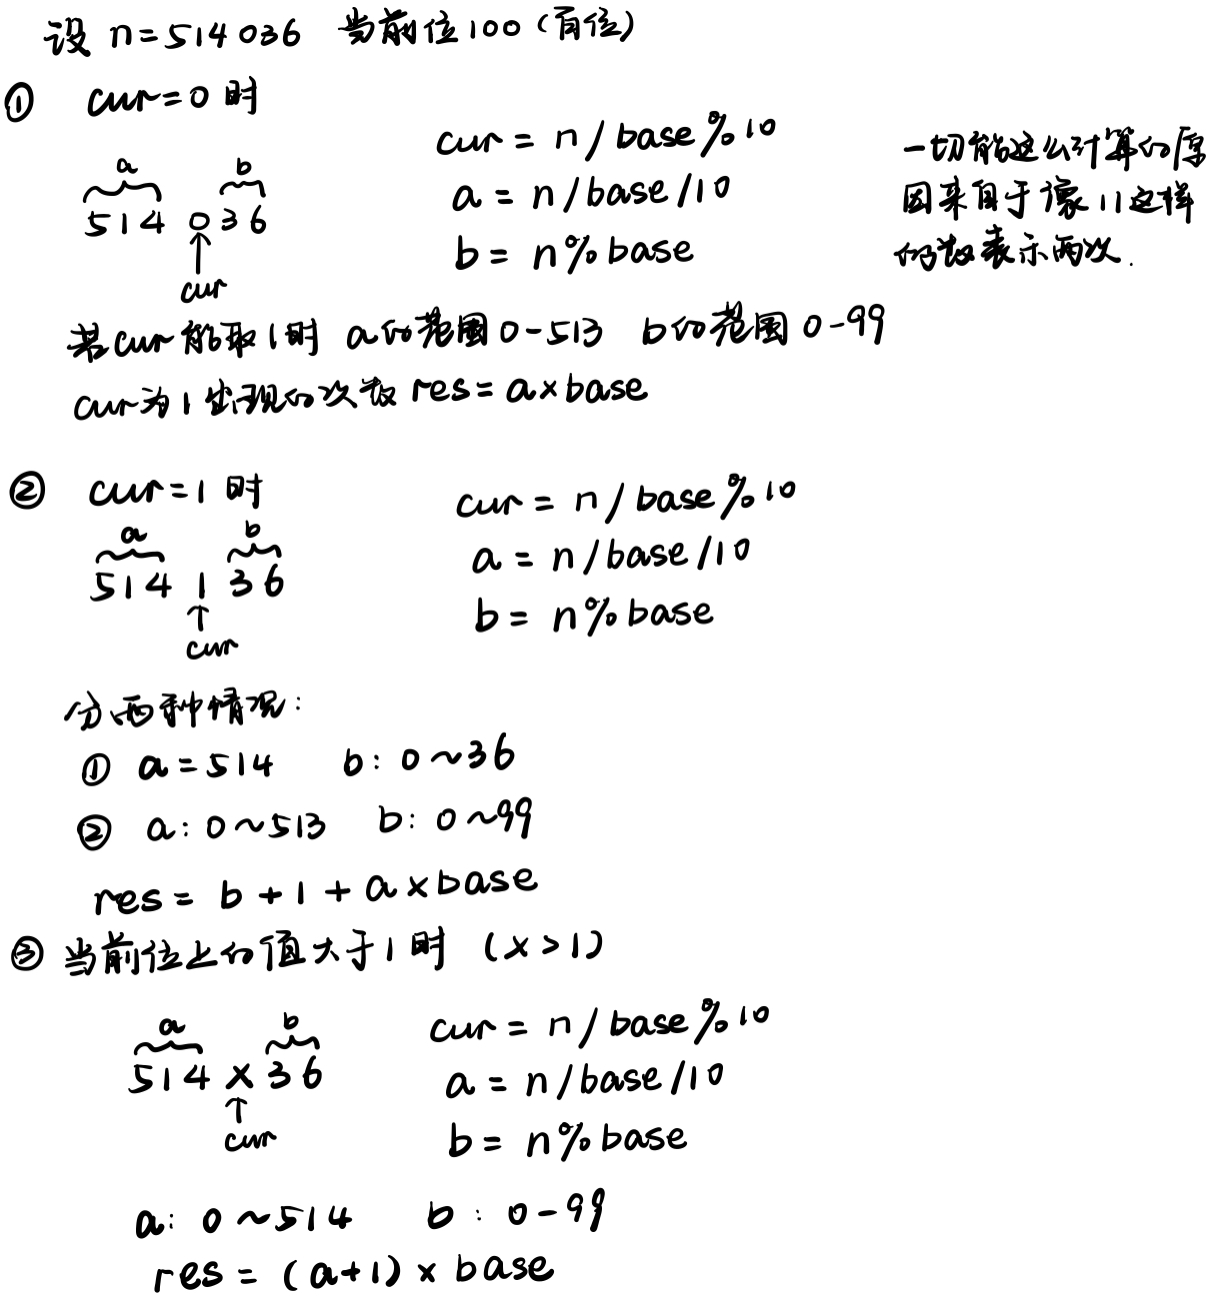 设 n=514036 当前位100(百位)
① cur=0时
a b
514 0 36
cur
cur = n/base%10
a = n/base/10
b = n%base
一切能这么计算的原
因来自于像11这样
的数表示两次.
若cur能取1时 a的范围0-513 b的范围0-99
cur为1出现的次数 res=a×base
② cur=1时
a b
514 1 36
cur
cur = n/base%10
a = n/base/10
b = n%base
分两种情况:
① a=514 b:0~36
② a:0~513 b:0~99
res = b+1+a×base
③ 当前位上的值大于1时 (x>1)
a b
514 x 36
cur
cur = n/base%10
a = n/base/10
b = n%base
a: 0~514 b: 0-99
res = (a+1)×base